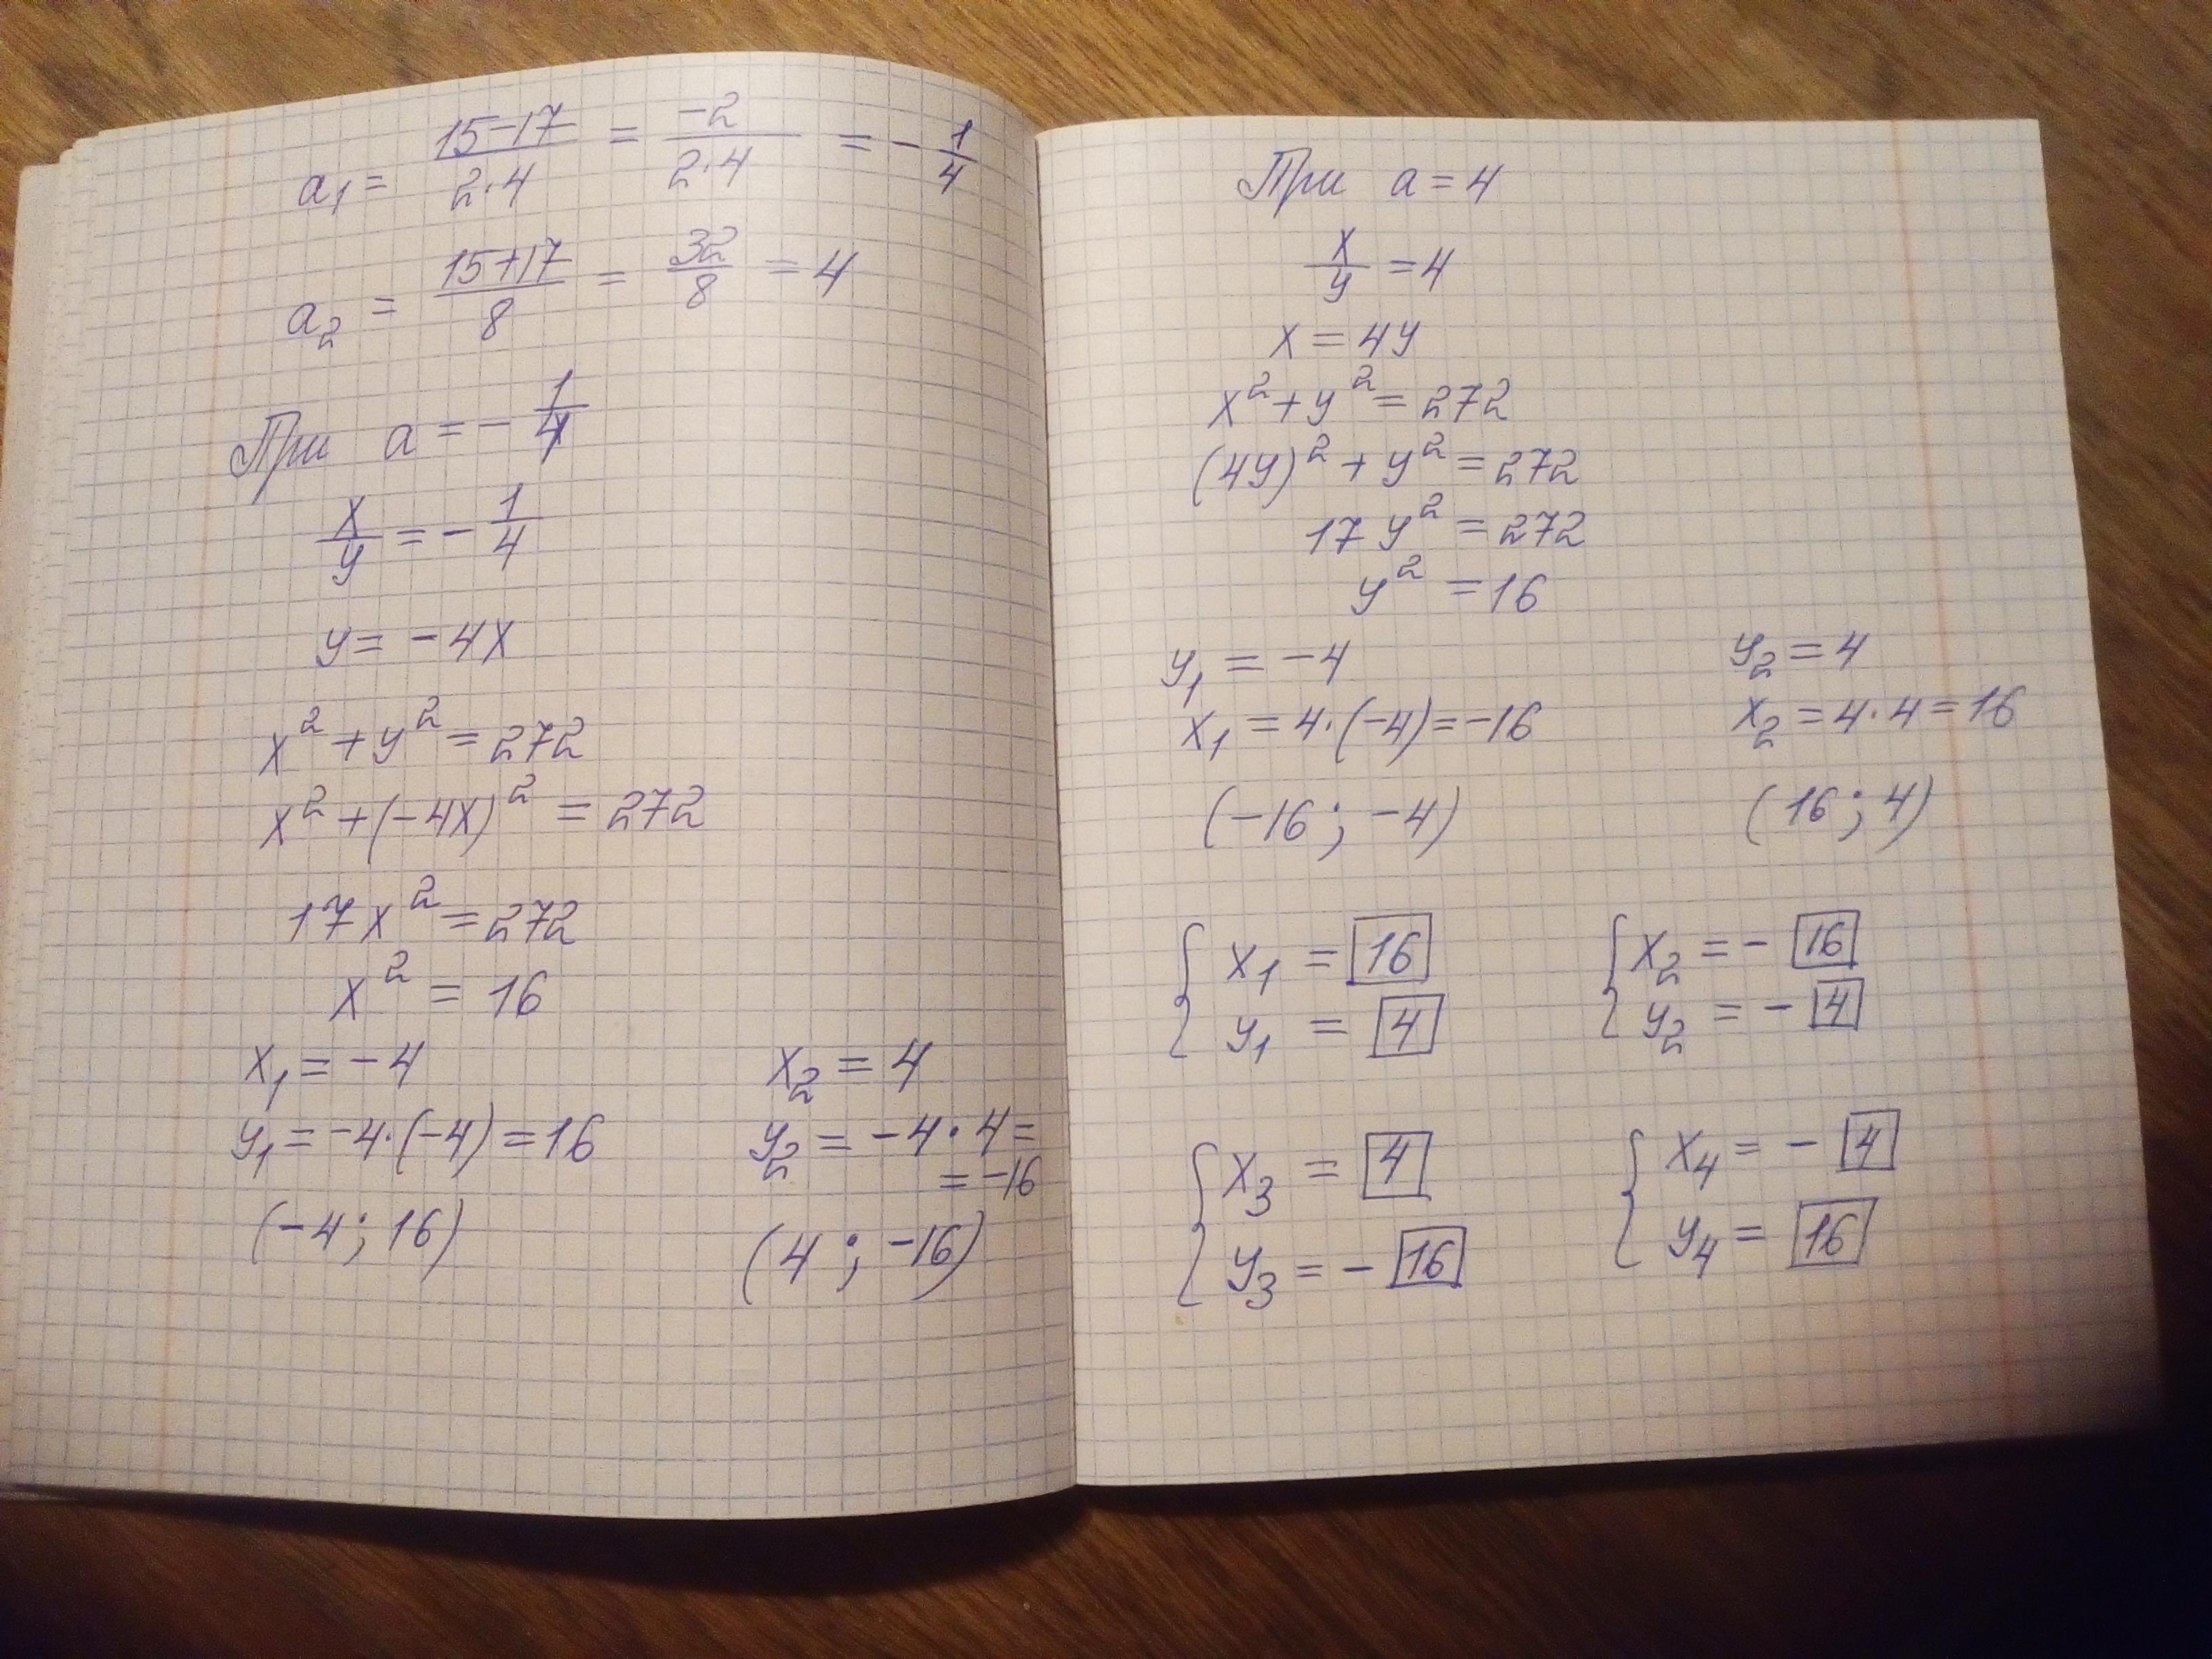 a₁ = (15-17)/(2·4) = -2/(2·4) = -1/4
a₂ = (15+17)/8 = 32/8 = 4
При a = -1/4
x/y = -1/4
y = -4x
x² + y² = 272
x² + (-4x)² = 272
17x² = 272
x² = 16
x₁ = -4 x₂ = 4
y₁ = -4·(-4) = 16 y₂ = -4·4 =
= -16
(-4; 16) (4; -16)
При a = 4
x/y = 4
x = 4y
x² + y² = 272
(4y)² + y² = 272
17y² = 272
y² = 16
y₁ = -4 y₂ = 4
x₁ = 4·(-4) = -16 x₂ = 4·4 = 16
(-16; -4) (16; 4)
{ x₁ = 16 { x₂ = -16
y₁ = 4 y₂ = -4
{ x₃ = 4 { x₄ = -4
y₃ = -16 y₄ = 16